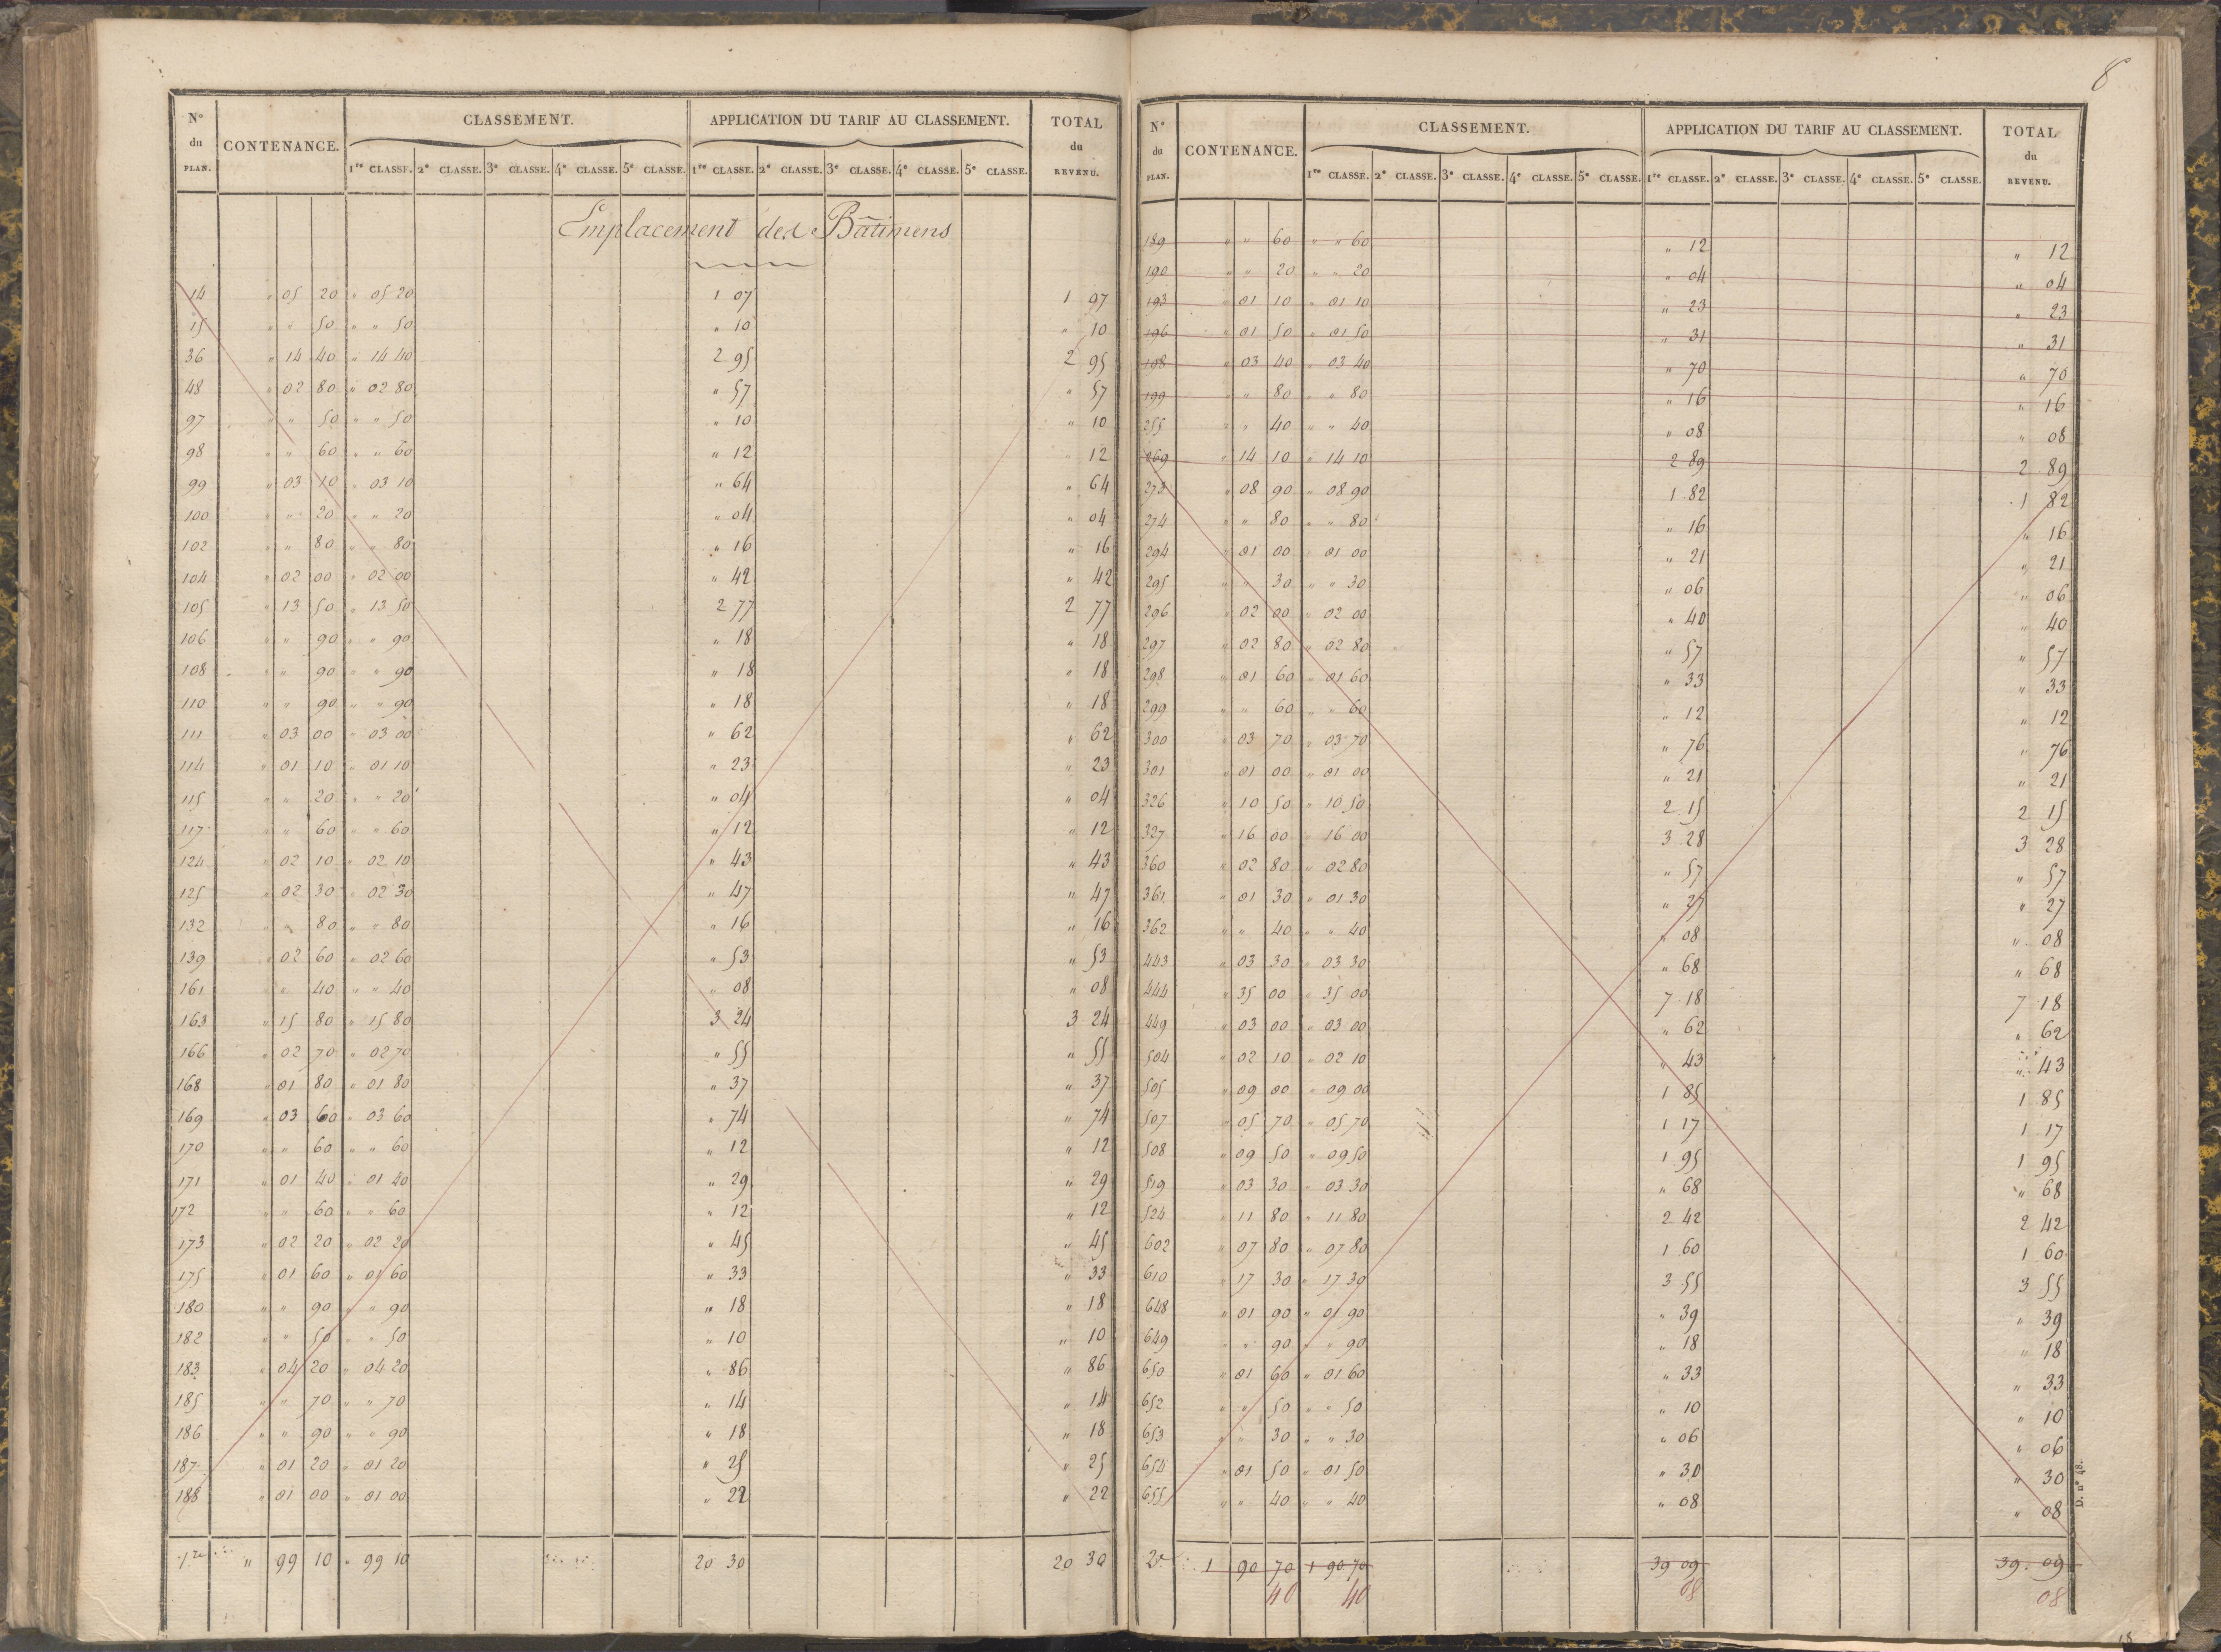 8
N° du PLAN. CONTENANCE. CLASSEMENT. APPLICATION DU TARIF AU CLASSEMENT. TOTAL du REVENU.
1re CLASSE. 2e CLASSE. 3e CLASSE. 4e CLASSE. 5e CLASSE. 1re CLASSE. 2e CLASSE. 3e CLASSE. 4e CLASSE. 5e CLASSE.
Emplacement des Bâtimens
14 " 05 20 " 05 20 1 07 1 97
15 " " 50 " " 50 " 10 " 10
36 " 14 40 " 14 40 2 95 2 95
48 " 02 80 " 02 80 " 57 " 57
97 " " 50 " " 50 " 10 " 10
98 " " 60 " " 60 " 12 " 12
99 " 03 10 " 03 10 " 64 " 64
100 " " 20 " " 20 " 04 " 04
102 " " 80 " " 80 " 16 " 16
104 " 02 00 " 02 00 " 42 " 42
105 " 13 50 " 13 50 2 77 2 77
106 " " 90 " " 90 " 18 " 18
108 " " 90 " " 90 " 18 " 18
110 " " 90 " " 90 " 18 " 18
111 " 03 00 " 03 00 " 62 " 62
114 " 01 10 " 01 10 " 23 " 23
115 " " 20 " " 20 " 04 " 04
117 " " 60 " " 60 " 12 " 12
124 " 02 10 " 02 10 " 43 " 43
125 " 02 30 " 02 30 " 47 " 47
132 " " 80 " " 80 " 16 " 16
139 " 02 60 " 02 60 " 53 " 53
161 " " 40 " " 40 " 08 " 08
163 " 15 80 " 15 80 3 24 3 24
166 " 02 70 " 02 70 " 55 " 55
168 " 01 80 " 01 80 " 37 " 37
169 " 03 60 " 03 60 " 74 " 74
170 " " 60 " " 60 " 12 " 12
171 " 01 40 " 01 40 " 29 " 29
172 " " 60 " " 60 " 12 " 12
173 " 02 20 " 02 20 " 45 " 45
175 " 01 60 " 01 60 " 33 " 33
180 " " 90 " " 90 " 18 " 18
182 " " 50 " " 50 " 10 " 10
183 " 04 20 " 04 20 " 86 " 86
185 " " 70 " " 70 " 14 " 14
186 " " 90 " " 90 " 18 " 18
187 " 01 20 " 01 20 " 25 " 25
188 " 01 00 " 01 00 " 22 " 22
1re " 99 10 " 99 10 20 30 20 30
N° du PLAN. CONTENANCE. CLASSEMENT. APPLICATION DU TARIF AU CLASSEMENT. TOTAL du REVENU.
1re CLASSE. 2e CLASSE. 3e CLASSE. 4e CLASSE. 5e CLASSE. 1re CLASSE. 2e CLASSE. 3e CLASSE. 4e CLASSE. 5e CLASSE.
189 " " 60 " " 60 " 12 " 12
190 " " 20 " " 20 " 04 " 04
193 " 01 10 " 01 10 " 23 " 23
196 " 01 50 " 01 50 " 31 " 31
198 " 03 40 " 03 40 " 70 " 70
199 " " 80 " " 80 " 16 " 16
255 " " 40 " " 40 " 08 " 08
269 " 14 10 " 14 10 2 89 2 89
273 " 08 90 " 08 90 1 82 1 82
274 " " 80 " " 80 " 16 " 16
294 " 01 00 " 01 00 " 21 " 21
295 " " 30 " " 30 " 06 " 06
296 " 02 00 " 02 00 " 40 " 40
297 " 02 80 " 02 80 " 57 " 57
298 " 01 60 " 01 60 " 33 " 33
299 " " 60 " " 60 " 12 " 12
300 " 03 70 " 03 70 " 76 " 76
301 " 01 00 " 01 00 " 21 " 21
326 " 10 50 " 10 50 2 15 2 15
327 " 16 00 " 16 00 3 28 3 28
360 " 02 80 " 02 80 " 57 " 57
361 " 01 30 " 01 30 " 27 " 27
362 " " 40 " " 40 " 08 " 08
443 " 03 30 " 03 30 " 68 " 68
444 " 35 00 " 35 00 7 18 7 18
449 " 03 00 " 03 00 " 62 " 62
504 " 02 10 " 02 10 " 43 " 43
505 " 09 00 " 09 00 1 85 1 85
507 " 05 70 " 05 70 1 17 1 17
508 " 09 50 " 09 50 1 95 1 95
519 " 03 30 " 03 30 " 68 " 68
524 " 11 80 " 11 80 2 42 2 42
602 " 07 80 " 07 80 1 60 1 60
610 " 17 30 " 17 30 3 55 3 55
648 " 01 90 " 01 90 " 39 " 39
649 " " 90 " " 90 " 18 " 18
650 " 01 60 " 01 60 " 33 " 33
652 " " 50 " " 50 " 10 " 10
653 " " 30 " " 30 " 06 " 06
654 " 01 50 " 01 50 " 30 " 30
655 " " 40 " " 40 " 08 " 08
2e 1 90 70 1 90 70 39 09 39 09
40 40 08 08
D. n° 48.